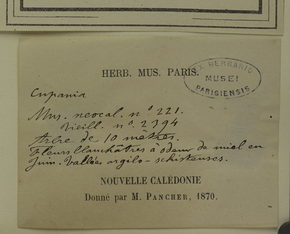 HERB. MUS. PARIS.
EX HERBARIO
MUSEI
PARISIENSIS
Cupania
Mus. neocal. n° 221.
Vieill. n° 2394
Arbre de 10 mètres.
Fleurs blanchâtres à odeur de miel en
Juin. Vallées argilo-schisteuses.
NOUVELLE CALÉDONIE
Donné par M. PANCHER, 1870.